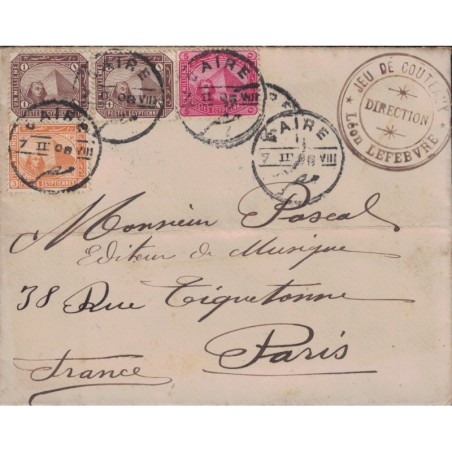 CAIRE
7 II 08 VIII
CAIRE
7 II 08 VIII
CAIRE
7 II 08 VIII
POSTES EGYPTIENNES
JEU DE
DIRECTION
Léon LEFEBVRE
Monsieur Pascal
Editeur de Musique
38 Rue Tiquetonne
Paris
France